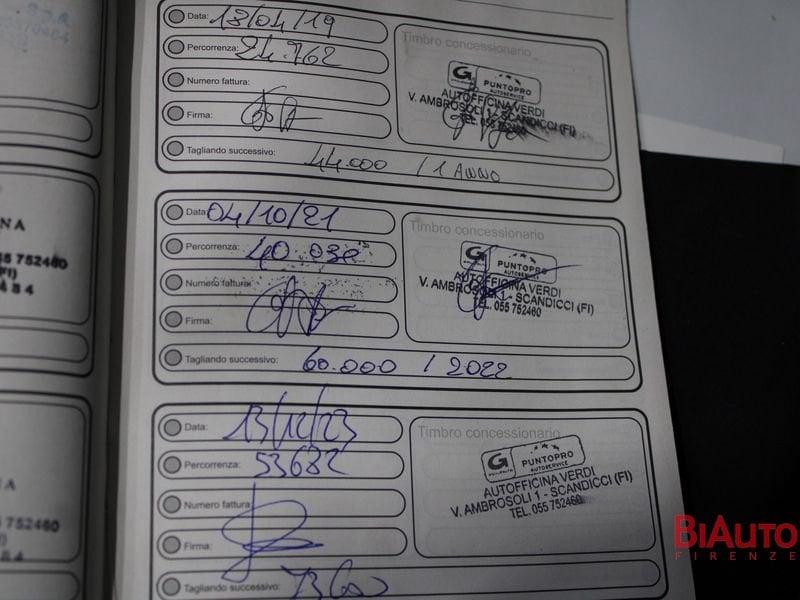 Data: 13/04/19
Percorrenza: 24.762
Numero fattura:
Firma:
Tagliando successivo: 44.000 / 1 ANNO
Timbro concessionario
G PUNTOPRO
AUTOSERVICE
AUTOFFICINA VERDI
V. AMBROSOLI 1 - SCANDICCI (FI)
TEL. 055 752460
Data: 04/10/21
Percorrenza: 40.038
Numero fattura:
Firma:
Tagliando successivo: 60.000 / 2022
Timbro concessionario
G PUNTOPRO
AUTOSERVICE
AUTOFFICINA VERDI
V. AMBROSOLI 1 - SCANDICCI (FI)
TEL. 055 752460
Data: 13/12/23
Percorrenza: 53682
Numero fattura:
Firma:
Tagliando successivo:
Timbro concessionario
G PUNTOPRO
AUTOSERVICE
AUTOFFICINA VERDI
V. AMBROSOLI 1 - SCANDICCI (FI)
TEL. 055 752460
BIAUTO
FIRENZE